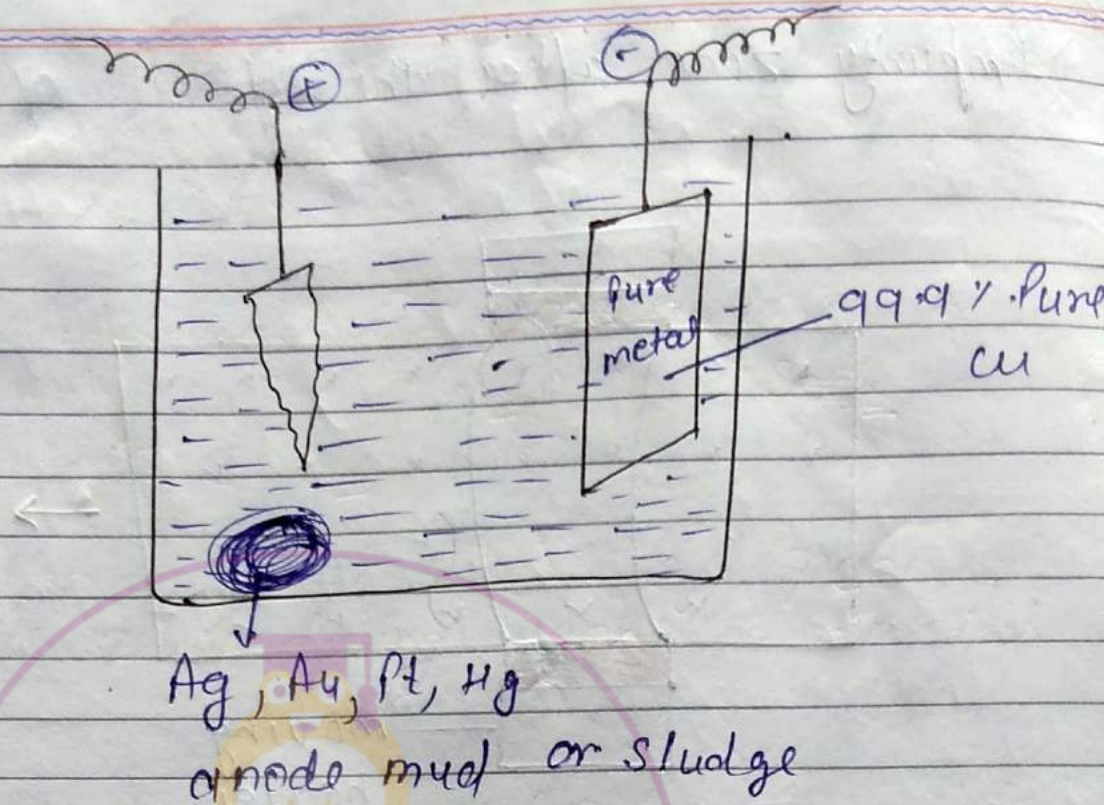 +
-
Pure
metal
99.9 % Pure
Cu
Ag, Au, Pt, Hg
anode mud or sludge